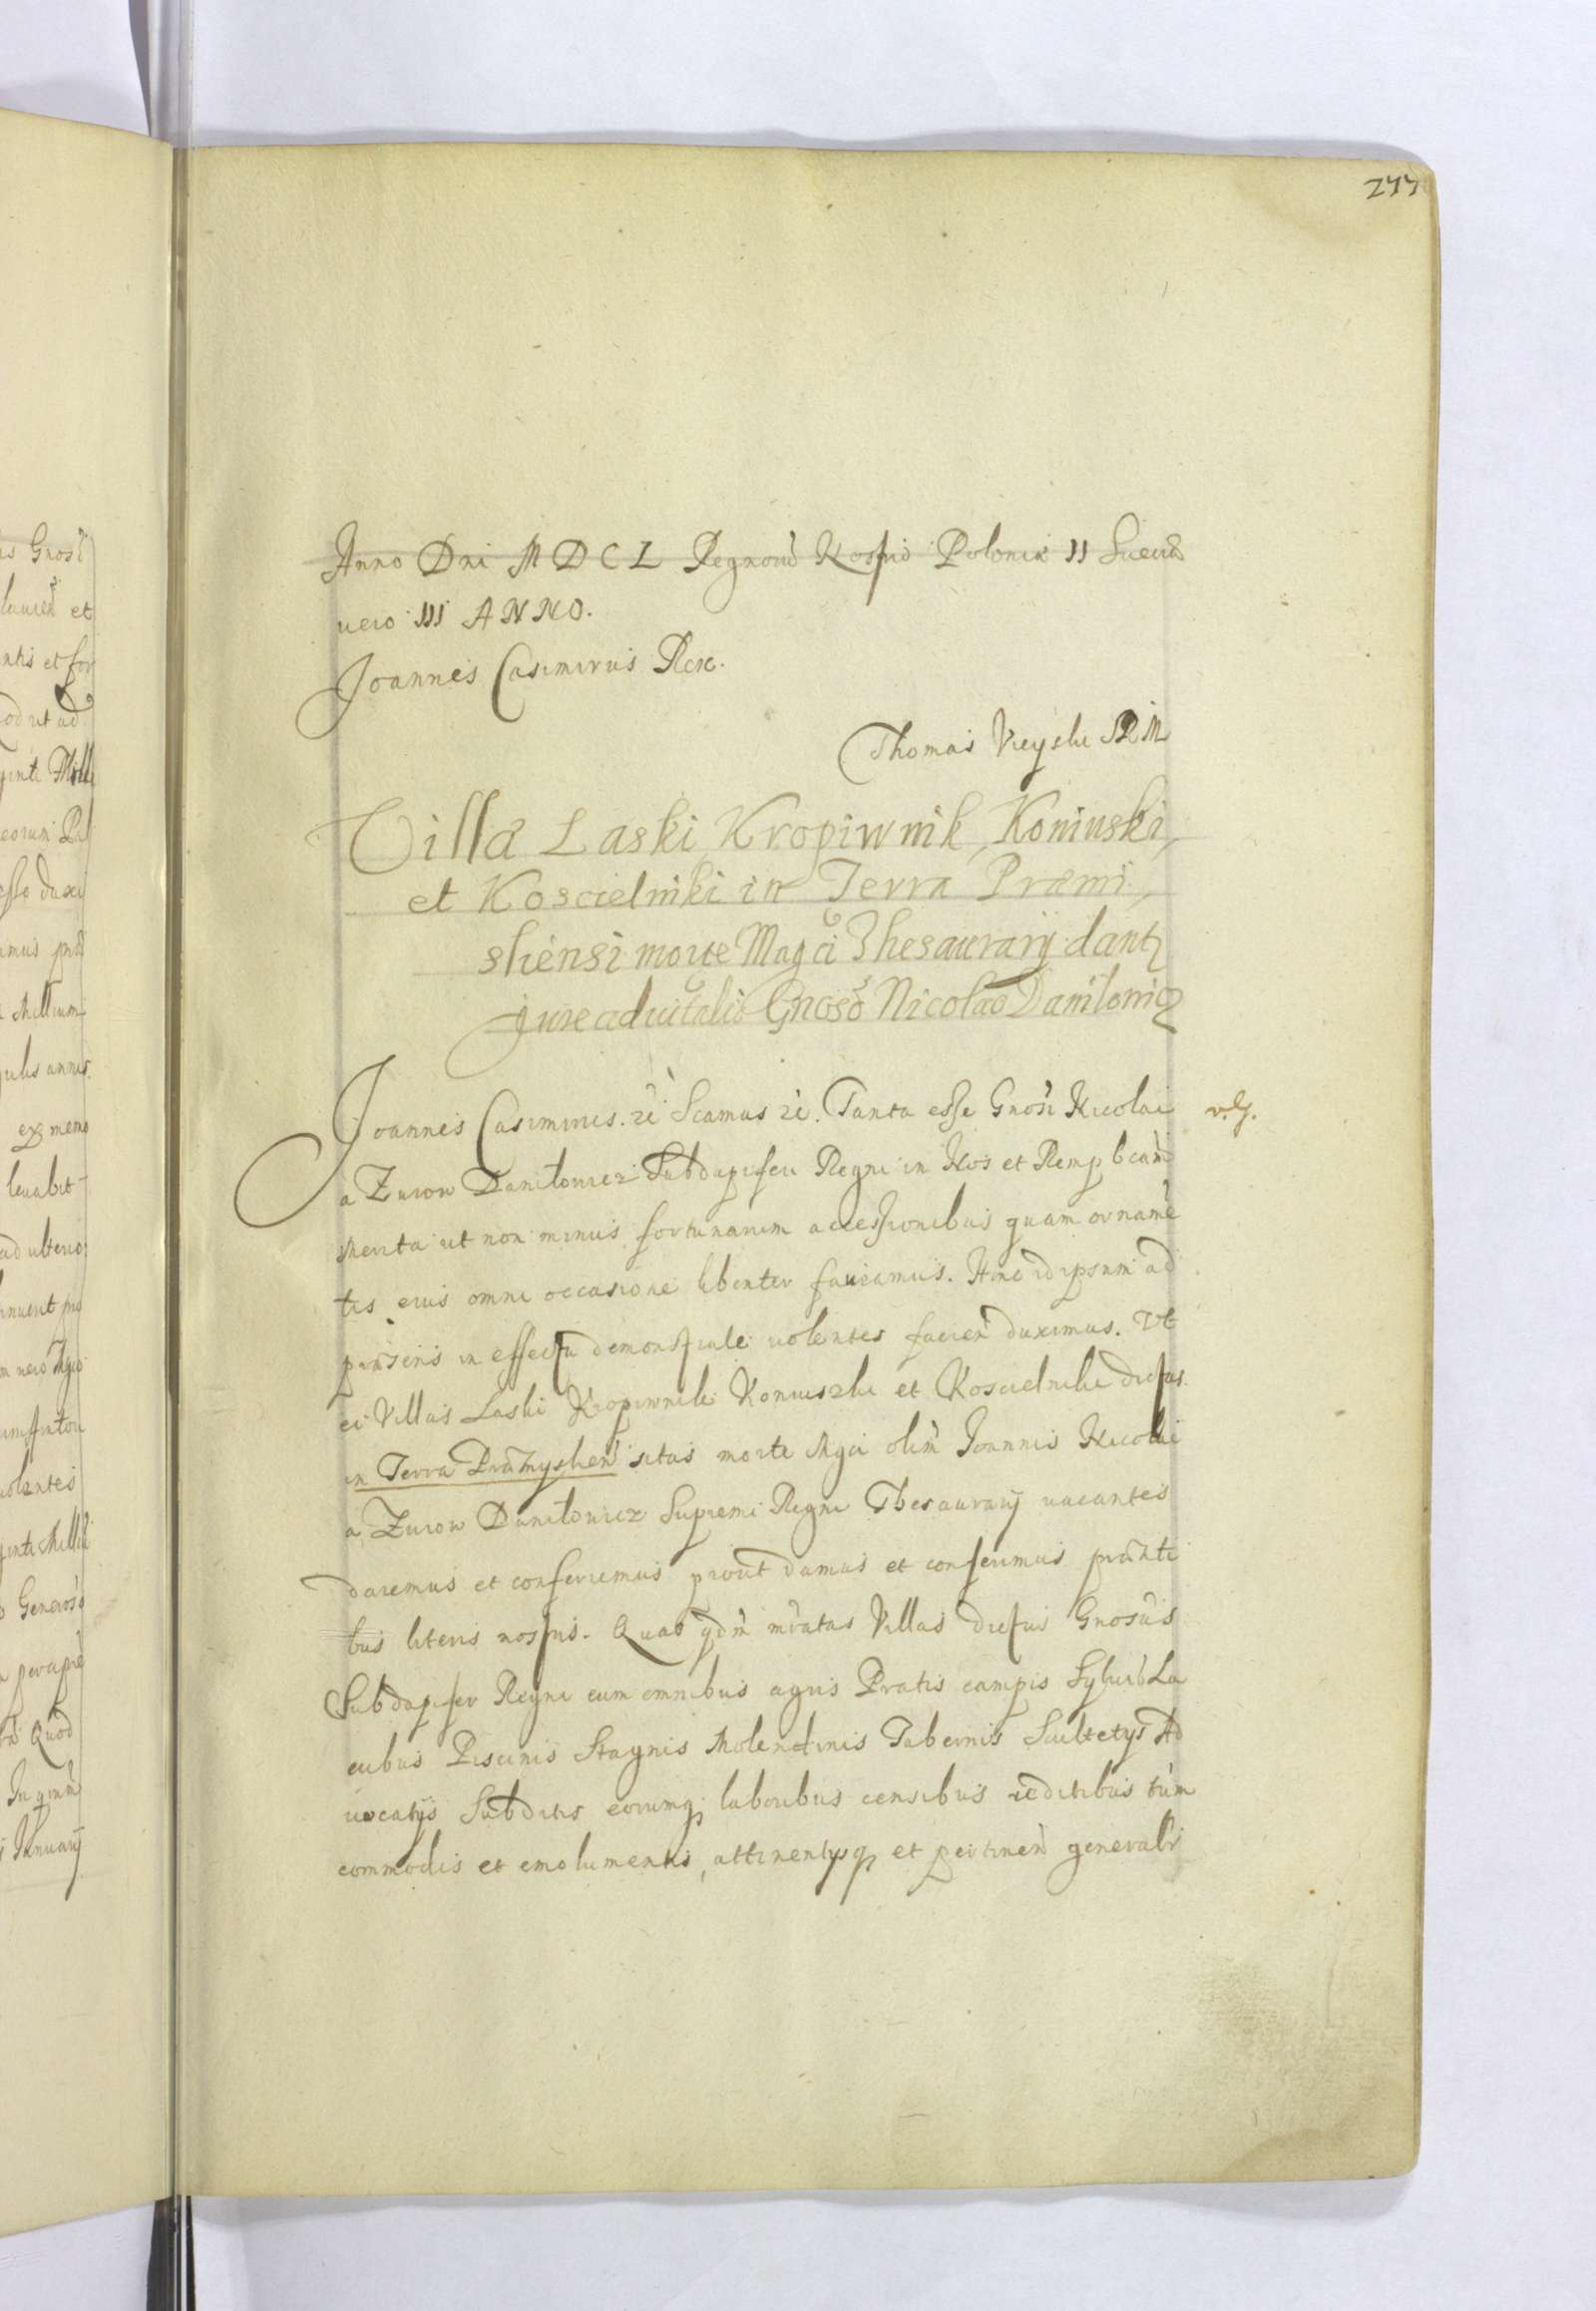 Anno Dni M D C L Regnorũ Nosŕo Poloniæ II Sueciæ
uero III ANNO.
Joannes Casimirus Rex.
Thomas Uieyski SRM
Villæ Laski Kropiwnik, Koniuski,
et Koscielniki in Terra Præmi,
sliensi morte Magci Thesaurarij dantz
jure aduitalio Gnoso Nicolao Daniłowicz
Joannes Casimirus. Sc̀ Scamus Sc̀. Tanta esse Gnosi Nicolai
v.g.
a Zurow Daniłowicz Subdapiferi Regni in Nos et Rempbcam̀
Merita ut non minus fortunarum accessionibus quam orname
tis eius omni occasione libenter faueamus. Hinc id ipsum ad
præsens in effectu demonstrare uolentes facien̄ duximus. Vt
ei Villas Laski Kropiwniki Koniuszki et Koscielniki dictas
in Terra Præmyslien̄ sitas morte Mgci olim̀ Joannis Nicolai
a Zurow Daniłowicz Supremi Regni Thesaurarij uacantes
daremus et conferremus prout damus et conferimus præ̃nti
bus literis nosŕis. Quas qdm̃ mratas Villas dictus Gnosus
Subdapifer Regni cum omnibus agris Pratis campis Syluis La
cubus Piscinis Stagnis Molendinis Tabernis Scultetys Ad
uocatijs Subditis eorumq; laboribus censibus reditibus tum
commodis et emolumentis, attinentysq; et pertinen̄ generalr